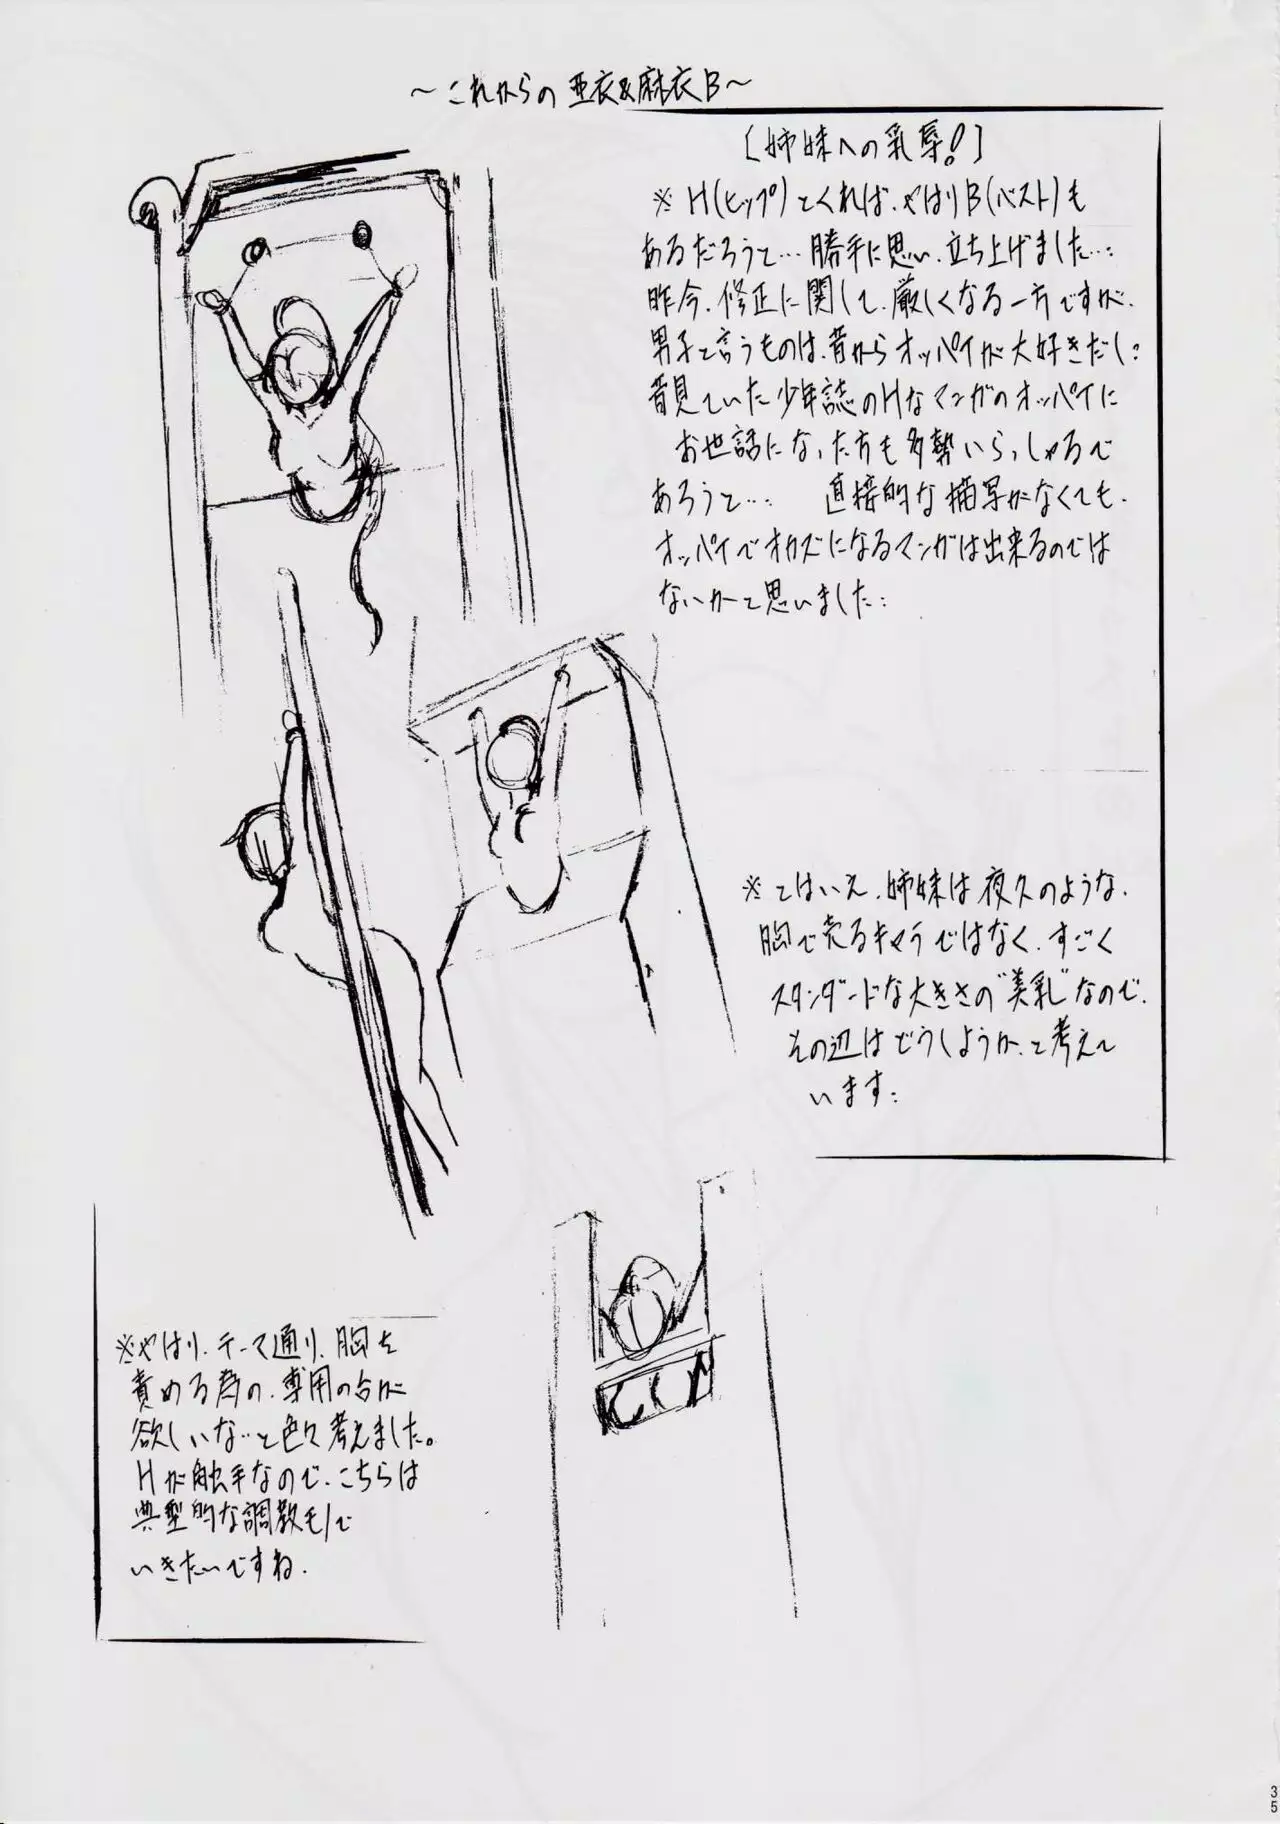 ～これからの亜衣&麻衣B～
[姉妹への乳辱!]
※H(ヒップ)とくれば、やはりB(バスト)も
あるだろうと…勝手に思い、立ち上げました…:
昨今、修正に関して、厳しくなる一方ですが、
男子と言うものは、昔からオッパイが大好きだし:
昔見ていた少年誌のHなマンガのオッパイに
お世話になった方も多勢いらっしゃるで
あろうと… 直接的な描写がなくても、
オッパイでオカズになるマンガは出来るのでは
ないかと思いました:
※とはいえ、姉妹は夜久のような、
胸で売るキャラではなく、すごく
スタンダードな大きさの"美乳"なので、
その辺はどうしようか、と考えて
います:
※やはり、テーマ通り、胸を
責める為の、専用の台が
欲しいな…と色々考えました。
Hが触手なので、こちらは
典型的な調教モノで
いきたいですね、
35